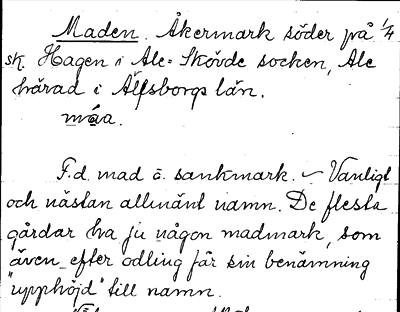 Maden. Åkermark söder på 1/4
sk. Hagen i Ale-Skövde socken, Ale
härad i Älfsborgs län.
måa.
F.d. mad o. sankmark. – Vanligt
och nästan allmänt namn. De flesta
gårdar ha ju någon madmark, som
även efter odling får sin benämning
"upphöjd" till namn.